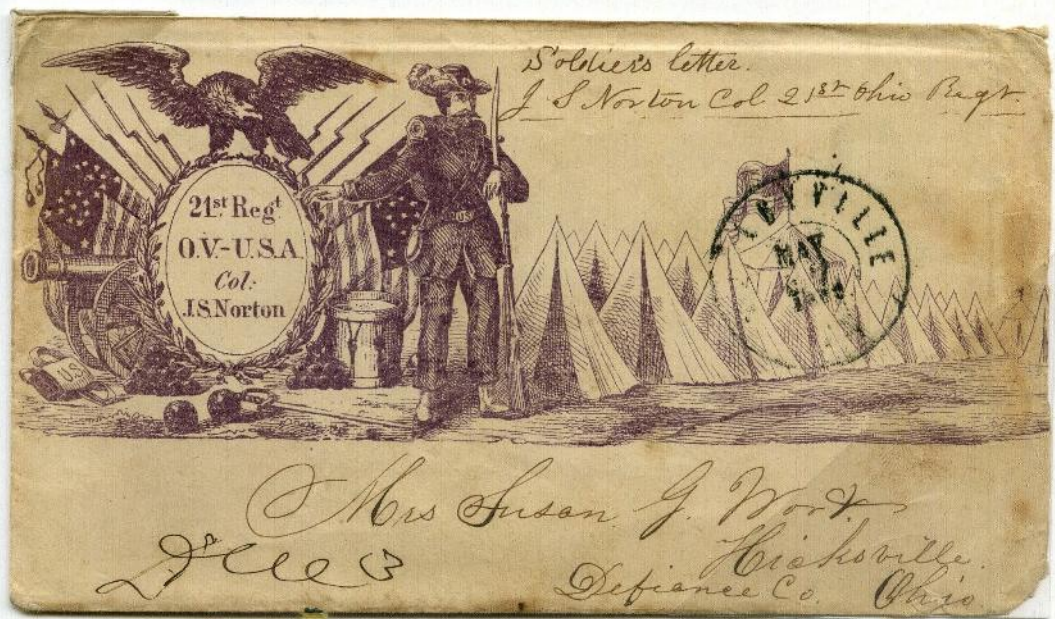 Soldier's letter.
J. S. Norton Col 21st Ohio Regt.
21st Regt
O.V.-U.S.A.
Col:
J.S Norton
US
US
MAY
Mrs Susan G. Work
Hicksville.
Defiance Co. Ohio
Due 3